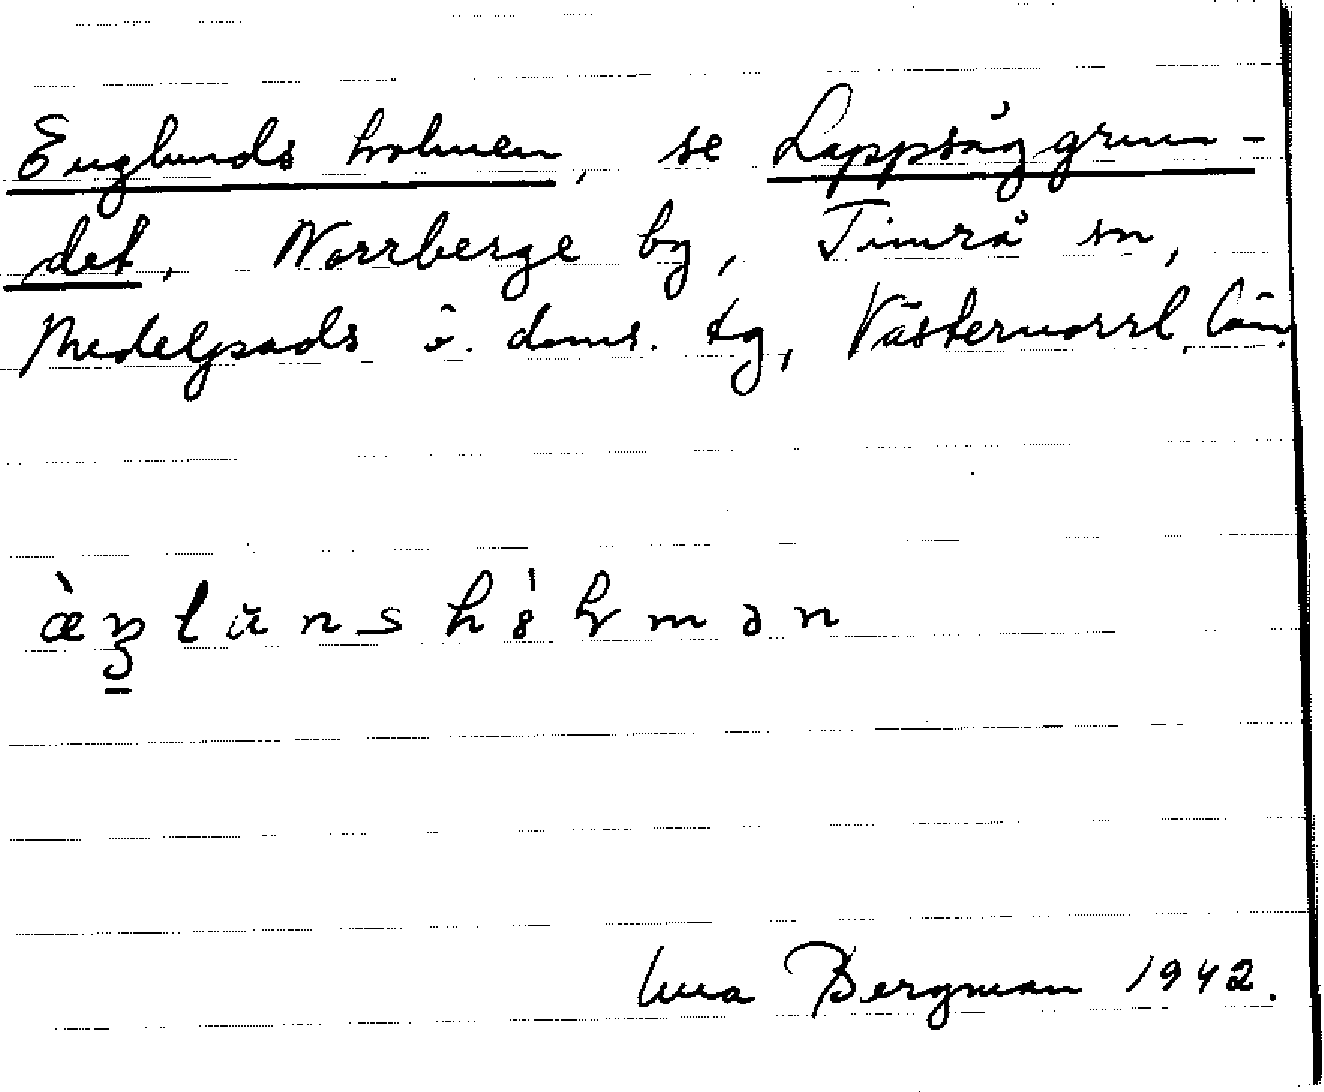 Englunds holmen, se Lappsåggrun-
det, Norrberge by, Timrå sn,
Medelpads ö. doms. tg, Västernorrl. län.
æ̀ŋlŭns hò̤lmən
Bergman 1942.